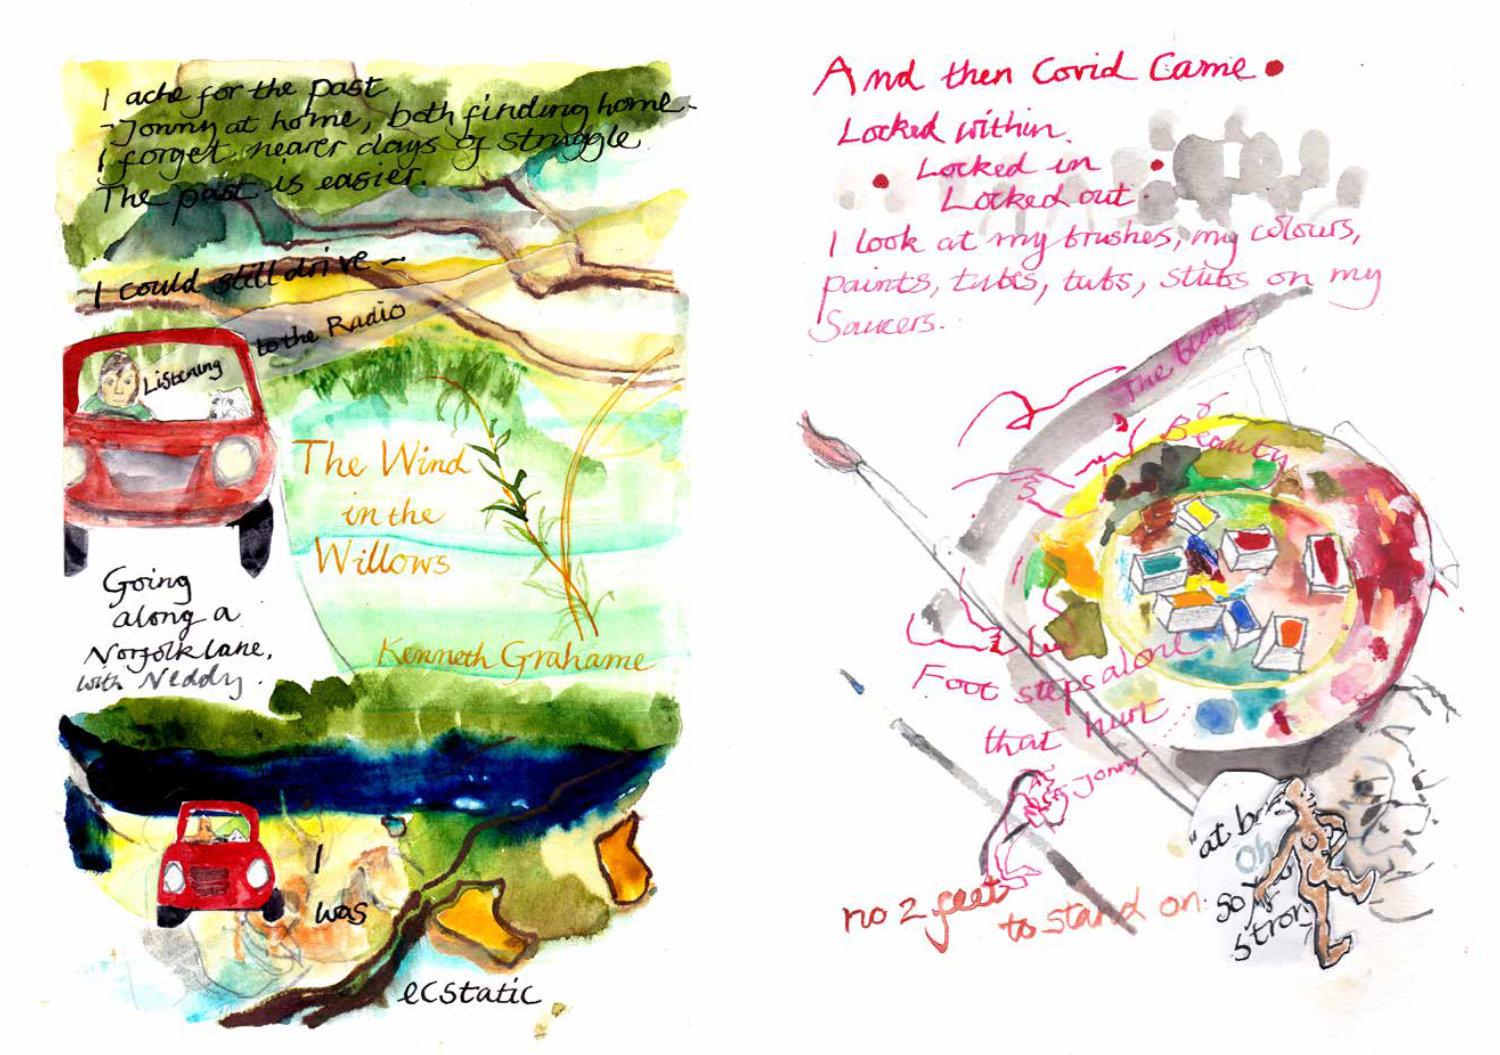 I ache for the past
- Jonny at home, both finding home.
I forget nearer days of struggle
The past is easier.
I could still drive ~
Listening to the Radio
The Wind
in the
Willows
Kenneth Grahame
Going
along a
Norfolk lane,
with Neddy.
I
was
ecstatic
And then Covid Came
Locked within.
Locked in
Locked out
I look at my brushes, my colours,
paints, tubes, tubs, stubs on my
Saucers.
The beast
or
Beauty
Foot steps alone
that hurt
-Jonny-
no 2 feet
to stand on.
"at
Oh
So
Strong